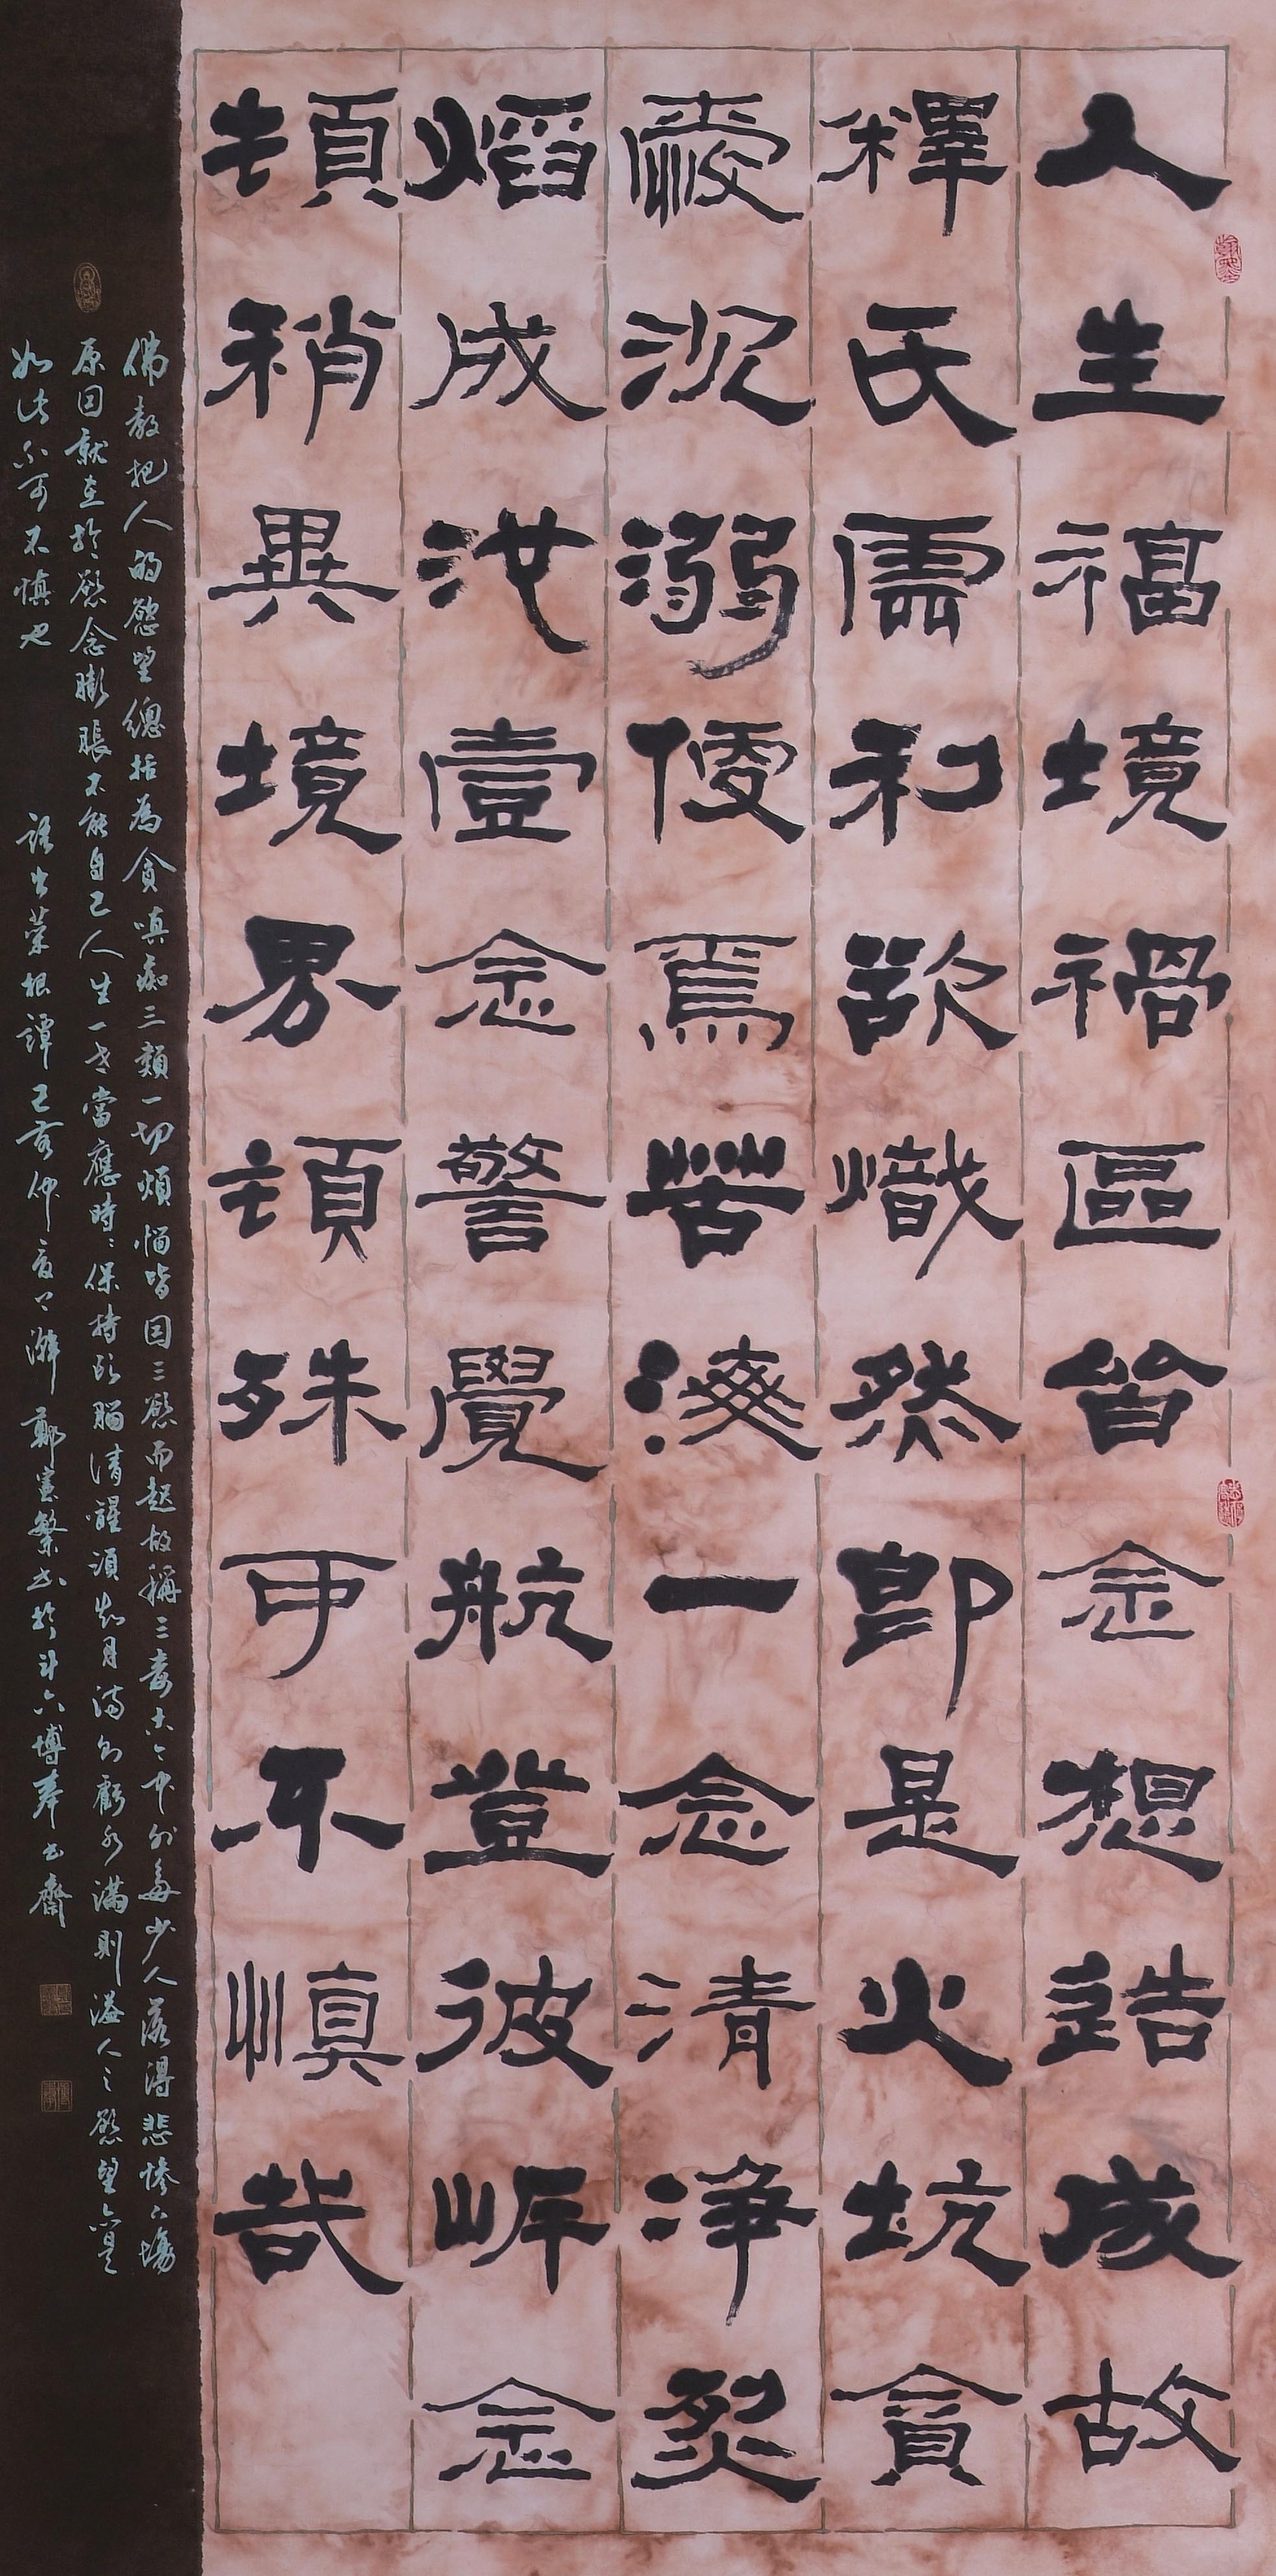 人生福境禍區皆念想造成故
釋氏雲利欲熾然即是火坑貪
愛沉溺便焉苦海一念清淨烈
焰成池壹念警覺航登彼岸念
頭稍異境界頓殊可不慎哉
佛教把人的慾望總括為貪嗔痴三類一切煩惱皆因三慾而起故稱三毒古今中外多少人落得悲慘下場
原因就在於慾念膨脹不能自已人生一世當應時時保持頭腦清醒須知月滿則虧水滿則溢人之慾望亦是
如此不可不慎也 語出菜根譚己亥仲夏上澣鄭憲繁書於斗六博奉書齋